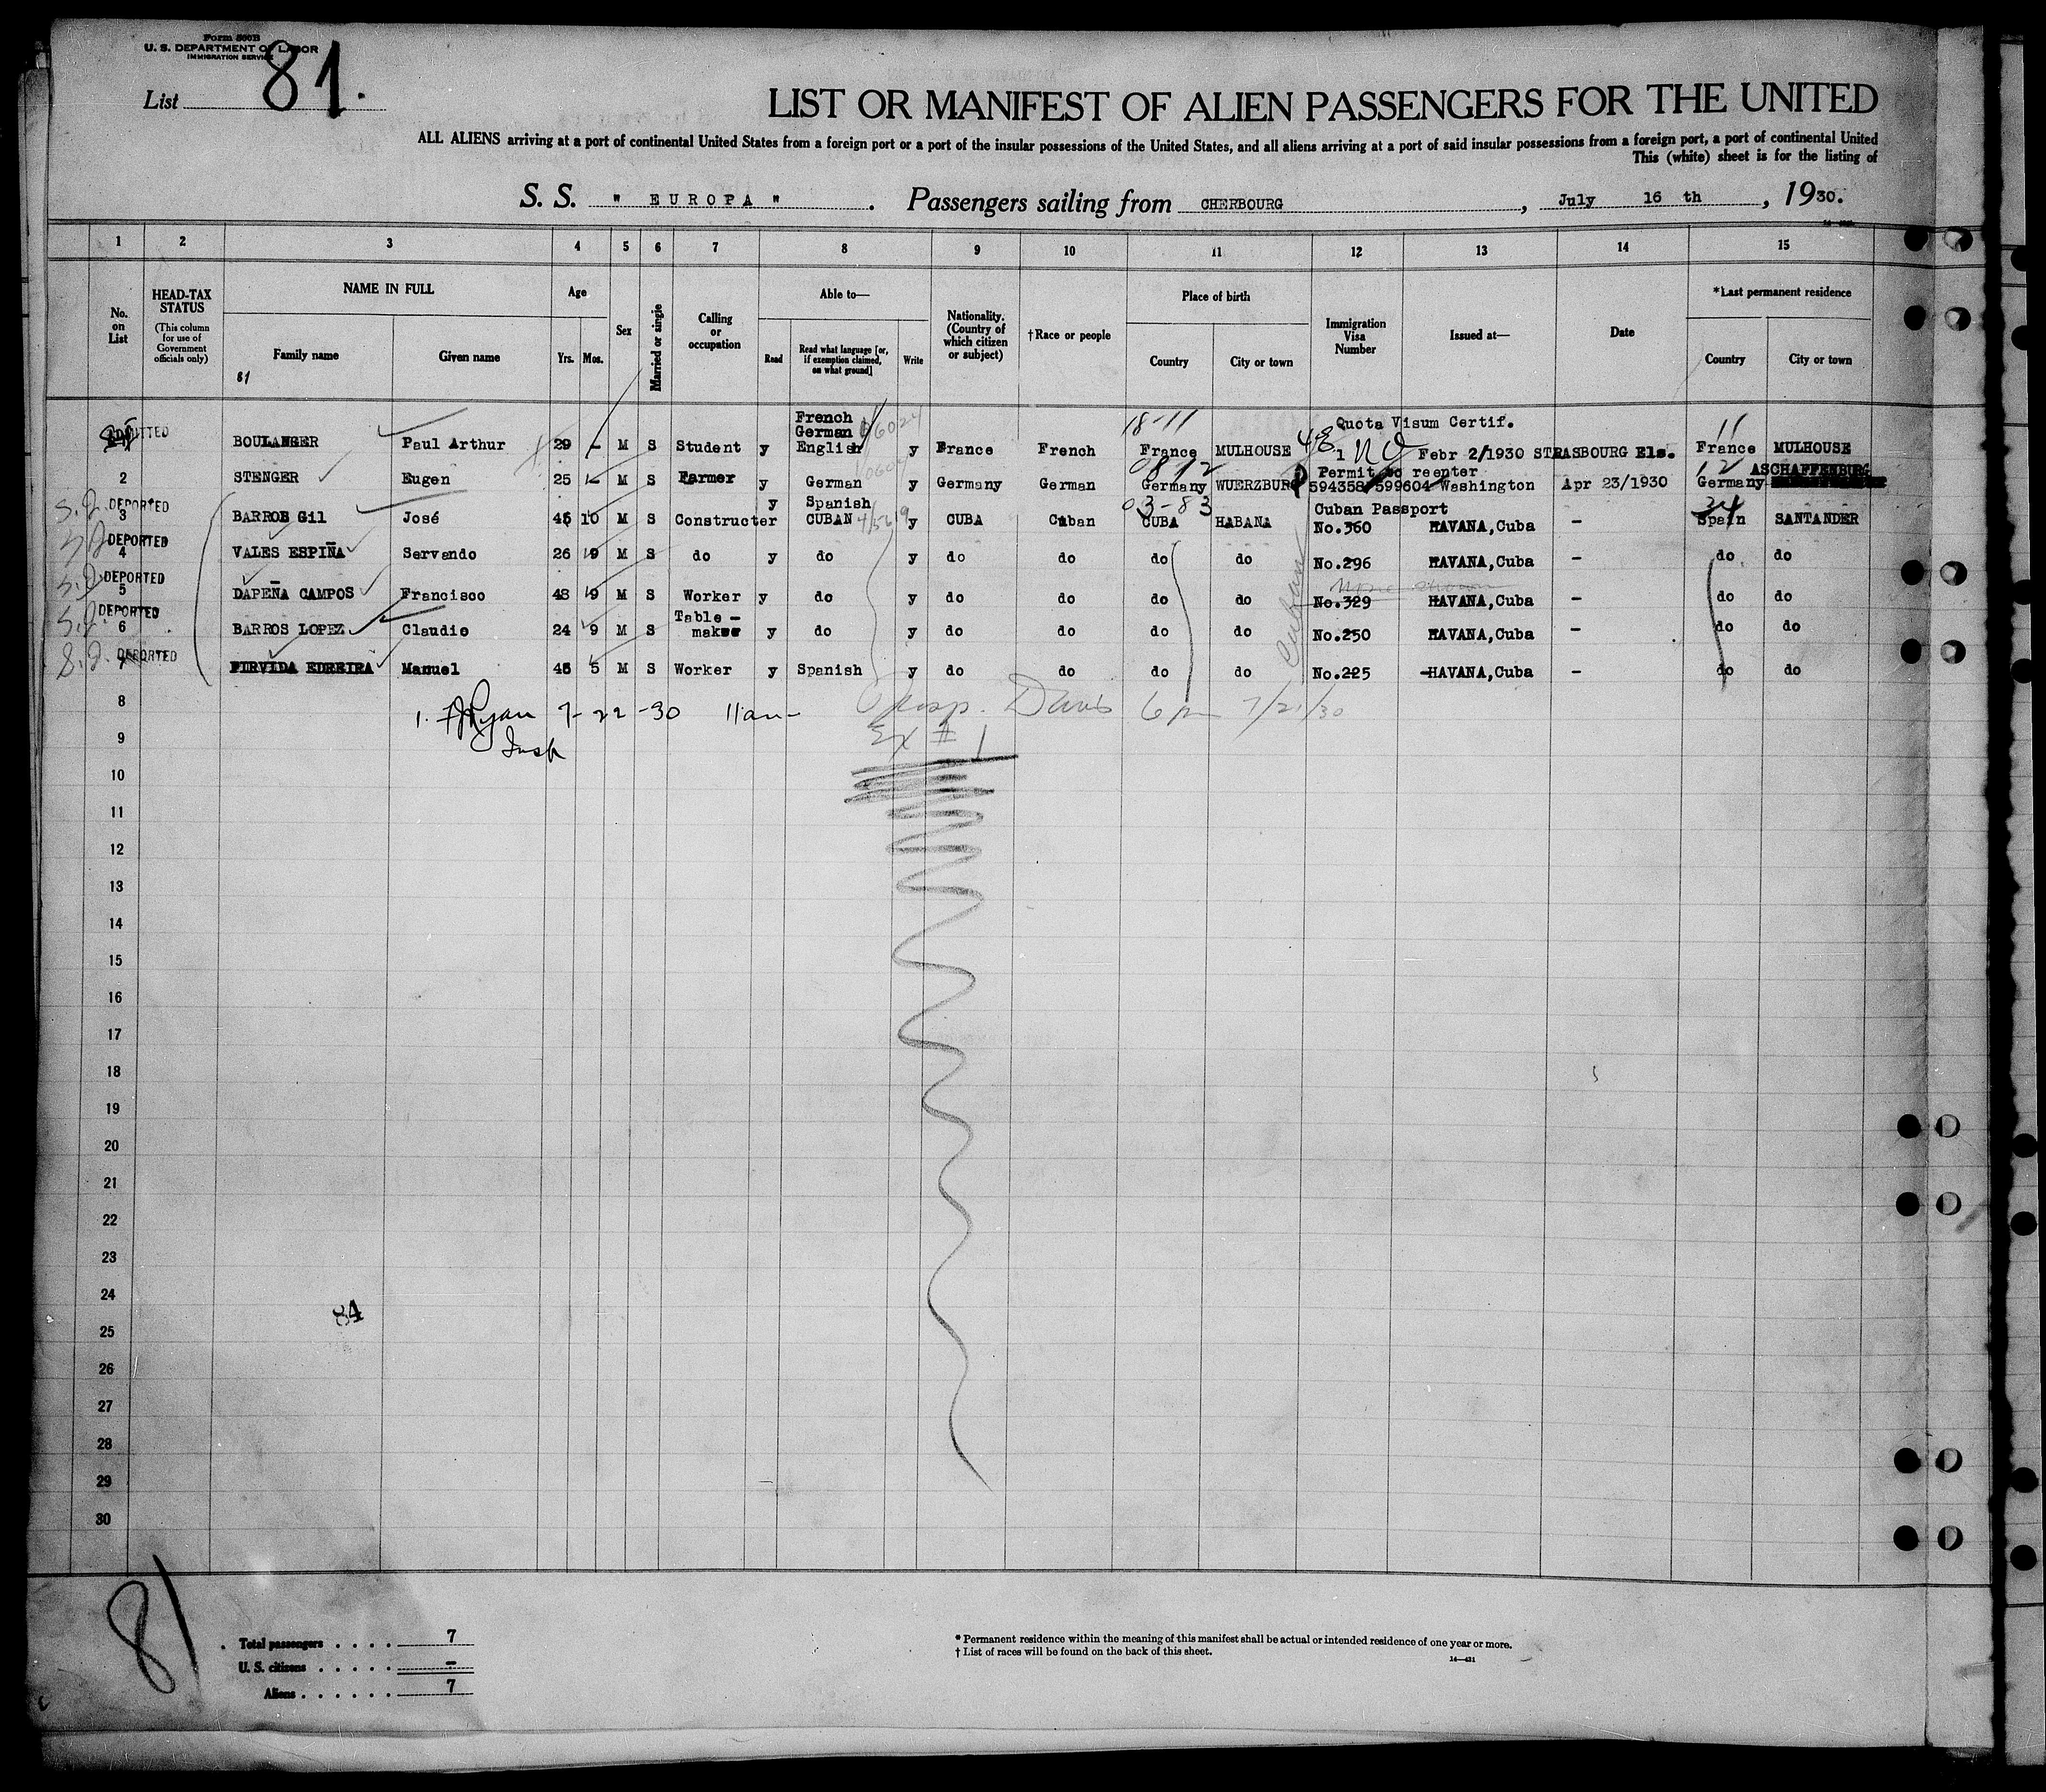 Form 500B
U. S. DEPARTMENT OF LABOR
IMMIGRATION SERVICE
List 81.
LIST OR MANIFEST OF ALIEN PASSENGERS FOR THE UNITED
ALL ALIENS arriving at a port of continental United States from a foreign port or a port of the insular possessions of the United States, and all aliens arriving at a port of said insular possessions from a foreign port, a port of continental United
This (white) sheet is for the listing of
S. S. " EUROPA ". Passengers sailing from CHERBOURG, July 16 th, 1930.
1 2 3 4 5 6 7 8 9 10 11 12 13 14 15
No. on List
HEAD-TAX STATUS (This column for use of Government officials only)
NAME IN FULL Family name Given name
81
Age Yrs. Mos.
Sex
Married or single
Calling or occupation
Able to— Read Read what language [or, if exemption claimed, on what ground] Write
Nationality. (Country of which citizen or subject)
†Race or people
Place of birth Country City or town
Immigration Visa Number
Issued at—
Date
*Last permanent residence Country City or town
French
German
Quota Visum Certif.
18-11
11
ADMITTED BOULANGER Paul Arthur 29 - M S Student y English y France French France MULHOUSE 1 Febr 2/1930 STRASBOURG Els. France MULHOUSE
Permit to reenter ASCHAFFENBURG
2 STENGER Eugen 25 M S Farmer y German y Germany German Germany WUERZBURG 594358/599604 Washington Apr 23/1930 Germany
DEPORTED y Spanish 03-83 Cuban Passport 24
3 BARROS Gil José 45 10 M S Constructer CUBAN y CUBA Cuban CUBA HABANA No.360 HAVANA,Cuba - Spain SANTANDER
DEPORTED
4 VALES ESPIÑA Servando 26 9 M S do y do y do do do do No.296 HAVANA,Cuba - do do
DEPORTED
5 DAPEÑA CAMPOS Francisco 43 9 M S Worker y do y do do do do No.329 HAVANA,Cuba - do do
DEPORTED Table -
6 BARROS LOPEZ Claudio 24 9 M S maker y do y do do do do No.250 HAVANA,Cuba - do do
DEPORTED
7 FIRVIDA EDREIRA Manuel 45 5 M S Worker y Spanish y do do do do No.225 -HAVANA,Cuba - do do
Cuban
8
1. Ryan 7-22-30 11am Hosp. Davis 6 pm 7/21/30
Insp
9
Ex # 1
10
11
12
13
14
15
16
17
18
19
20
21
22
23
24
84
25
26
27
28
29
30
81
Total passengers . . . . 7
U. S. citizens . . . . . -
Aliens . . . . . . 7
* Permanent residence within the meaning of this manifest shall be actual or intended residence of one year or more.
† List of races will be found on the back of this sheet.